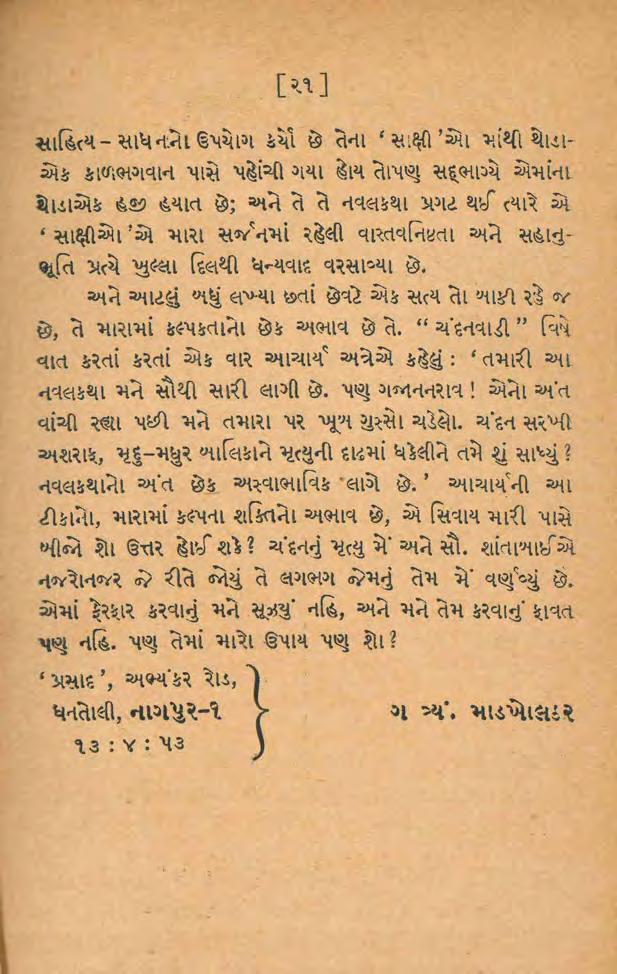 [૨૧]
સાહિત્ય – સાધનનો ઉપયોગ કર્યો છે તેના ‘સાક્ષી’ઓ માંથી થોડા-
એક કાળભગવાન પાસે પહોંચી ગયા હોય તોપણ સદ્ભાગ્યે એમાંના
થોડાએક હજી હયાત છે; અને તે તે નવલકથા પ્રગટ થઈ ત્યારે એ
‘સાક્ષીઓ’એ મારા સર્જનમાં રહેલી વાસ્તવનિષ્ઠતા અને સહાનુ-
ભૂતિ પ્રત્યે ખુલ્લા દિલથી ધન્યવાદ વરસાવ્યા છે.
અને આટલું બધું લખ્યા છતાં છેવટે એક સત્ય તો બાકી રહે જ
છે, તે મારામાં કલ્પકતાનો છેક અભાવ છે તે. “ચંદનવાડી” વિષે
વાત કરતાં કરતાં એક વાર આચાર્ય અત્રેએ કહેલું : ‘તમારી આ
નવલકથા મને સૌથી સારી લાગી છે. પણ ગજાનનરાવ! એનો અંત
વાંચી રહ્યા પછી મને તમારા પર ખૂબ ગુસ્સો ચડેલો. ચંદન સરખી
અશરાફ, મૃદુ–મધુર બાલિકાને મૃત્યુની દાઢમાં ધકેલીને તમે શું સાધ્યું?
નવલકથાનો અંત છેક અસ્વાભાવિક લાગે છે.’ આચાર્યની આ
ટીકાનો, મારામાં કલ્પના શક્તિનો અભાવ છે, એ સિવાય મારી પાસે
બીજો શો ઉત્તર હોઈ શકે? ચંદનનું મૃત્યુ મેં અને સૌ. શાંતાબાઈએ
નજરોનજર જે રીતે જોયું તે લગભગ જેમનું તેમ મેં વર્ણવ્યું છે.
એમાં ફેરફાર કરવાનું મને સૂઝયું નહિ, અને મને તેમ કરવાનું ફાવત
પણ નહિ. પણ તેમાં મારો ઉપાય પણ શો?
‘પ્રસાદ’, અભ્યંકર રોડ,
ધનતોલી, નાગપુર–૧
૧૩ : ૪ : ૫૩
ગ ત્ર્યં. માડખોલકર